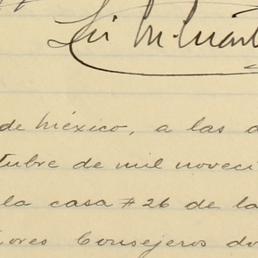 de México, a las d
tubre de mil noveci
la casa #26 de la
ores Consejeros do